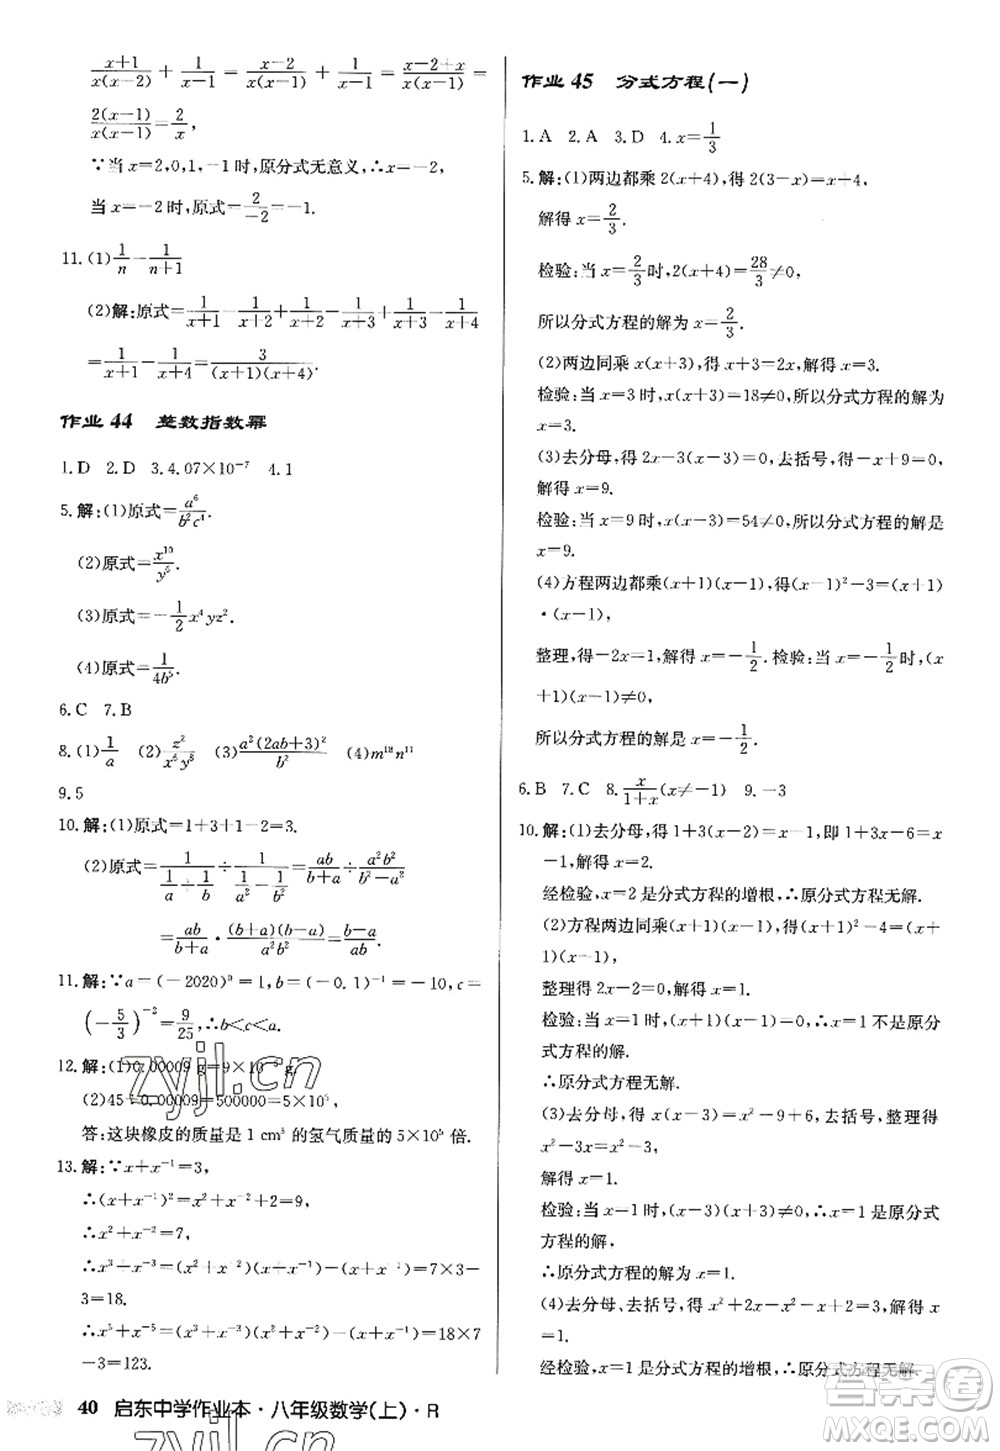 (x+1)/(x(x−2)) + 1/(x−1) = (x−2)/(x(x−1)) + 1/(x−1) = (x−2+x)/(x(x−1)) =
2(x−1)/(x(x−1)) = 2/x,
∵当 x=2,0,1,−1时,原分式无意义,∴x=−2,
当 x=−2时,原式=2/(−2)=−1.
11.(1) 1/n − 1/(n+1)
(2)解:原式= 1/(x+1) − 1/(x+2) + 1/(x+2) − 1/(x+3) + 1/(x+3) − 1/(x+4)
= 1/(x+1) − 1/(x+4) = 3/((x+1)(x+4)).
作业 44 整数指数幂
1.D 2.D 3.4.07×10⁻⁷ 4.1
5.解:(1)原式= a⁶/(b²c⁴).
(2)原式= x¹⁰/y⁵.
(3)原式=−(1/2)x⁴yz².
(4)原式= 1/(4b⁵).
6.C 7.B
8.(1) 1/a (2) z²/(x⁶y⁸) (3) a²(2ab+3)²/b² (4)m¹⁸n¹¹
9.5
10.解:(1)原式=1+3+1−2=3.
(2)原式= 1/(1/a+1/b) ÷ 1/(1/a²−1/b²) = ab/(b+a) ÷ a²b²/(b²−a²)
= ab/(b+a) · (b+a)(b−a)/(a²b²) = (b−a)/(ab).
11.解:∵a=(−2020)⁰=1,b=(−0.1)⁻¹=−10,c=
(−5/3)⁻²=9/25,∴b<c<a.
12.解:(1)0.00009 g=9×10⁻⁵ g.
(2)45÷0.00009=500000=5×10⁵.
答:这块橡皮的质量是 1 cm³ 的氢气质量的 5×10⁵ 倍.
13.解:∵x+x⁻¹=3,
∴(x+x⁻¹)²=x²+x⁻²+2=9,
∴x²+x⁻²=7,
∴x³+x⁻³=(x²+x⁻²)(x+x⁻¹)−(x+x⁻¹)=7×3−
3=18.
∴x⁵+x⁻⁵=(x²+x⁻²)(x³+x⁻³)−(x+x⁻¹)=7×18
−3=123.
40 启东中学作业本·八年级数学(上)·R
作业 45 分式方程(一)
1.A 2.A 3.D 4.x=1/3
5.解:(1)两边都乘 2(x+4),得 2(3−x)=x+4,
解得 x=2/3.
检验:当 x=2/3时,2(x+4)=28/3≠0,
所以分式方程的解为 x=2/3.
(2)两边同乘 x(x+3),得 x+3=2x,解得 x=3.
检验:当 x=3 时,x(x+3)=18≠0,所以分式方程的解为
x=3.
(3)去分母,得 2x−3(x−3)=0,去括号,得−x+9=0,
解得 x=9.
检验:当 x=9 时,x(x−3)=54≠0,所以分式方程的解是
x=9.
(4)方程两边都乘(x+1)(x−1),得(x−1)²−3=(x+1)
·(x−1),
整理,得−2x=1,解得 x=−1/2.检验:当 x=−1/2时,(x
+1)(x−1)≠0,
所以分式方程的解是 x=−1/2.
6.B 7.C 8. x/(1+x)(x≠−1) 9.−3
10.解:(1)去分母,得 1+3(x−2)=x−1,即 1+3x−6=x
−1,解得 x=2.
经检验,x=2 是分式方程的增根,∴原分式方程无解.
(2)方程两边同乘(x+1)(x−1),得(x+1)²−4=x²
−1,
整理得 2x=2,解得 x=1.
检验:当 x=1 时,(x+1)(x−1)=0,∴x=1 不是原分
式方程的解.
∴原分式方程无解.
(3)去分母,得 x(x−3)=x²−9+6,去括号,得
x²−3x=x²−3,
解得 x=1.
检验:当 x=1 时,(x−3)(x+3)≠0,∴x=1 是原分式
方程的解.
∴原分式方程的解为 x=1.
(4)去分母、去括号,得 x²+2x−x²−x+2=3,解得 x
=1.
经检验,x=1 是分式方程的增根,∴原分式方程无解.
zyjl.cn
答案圈
MXQE.COM